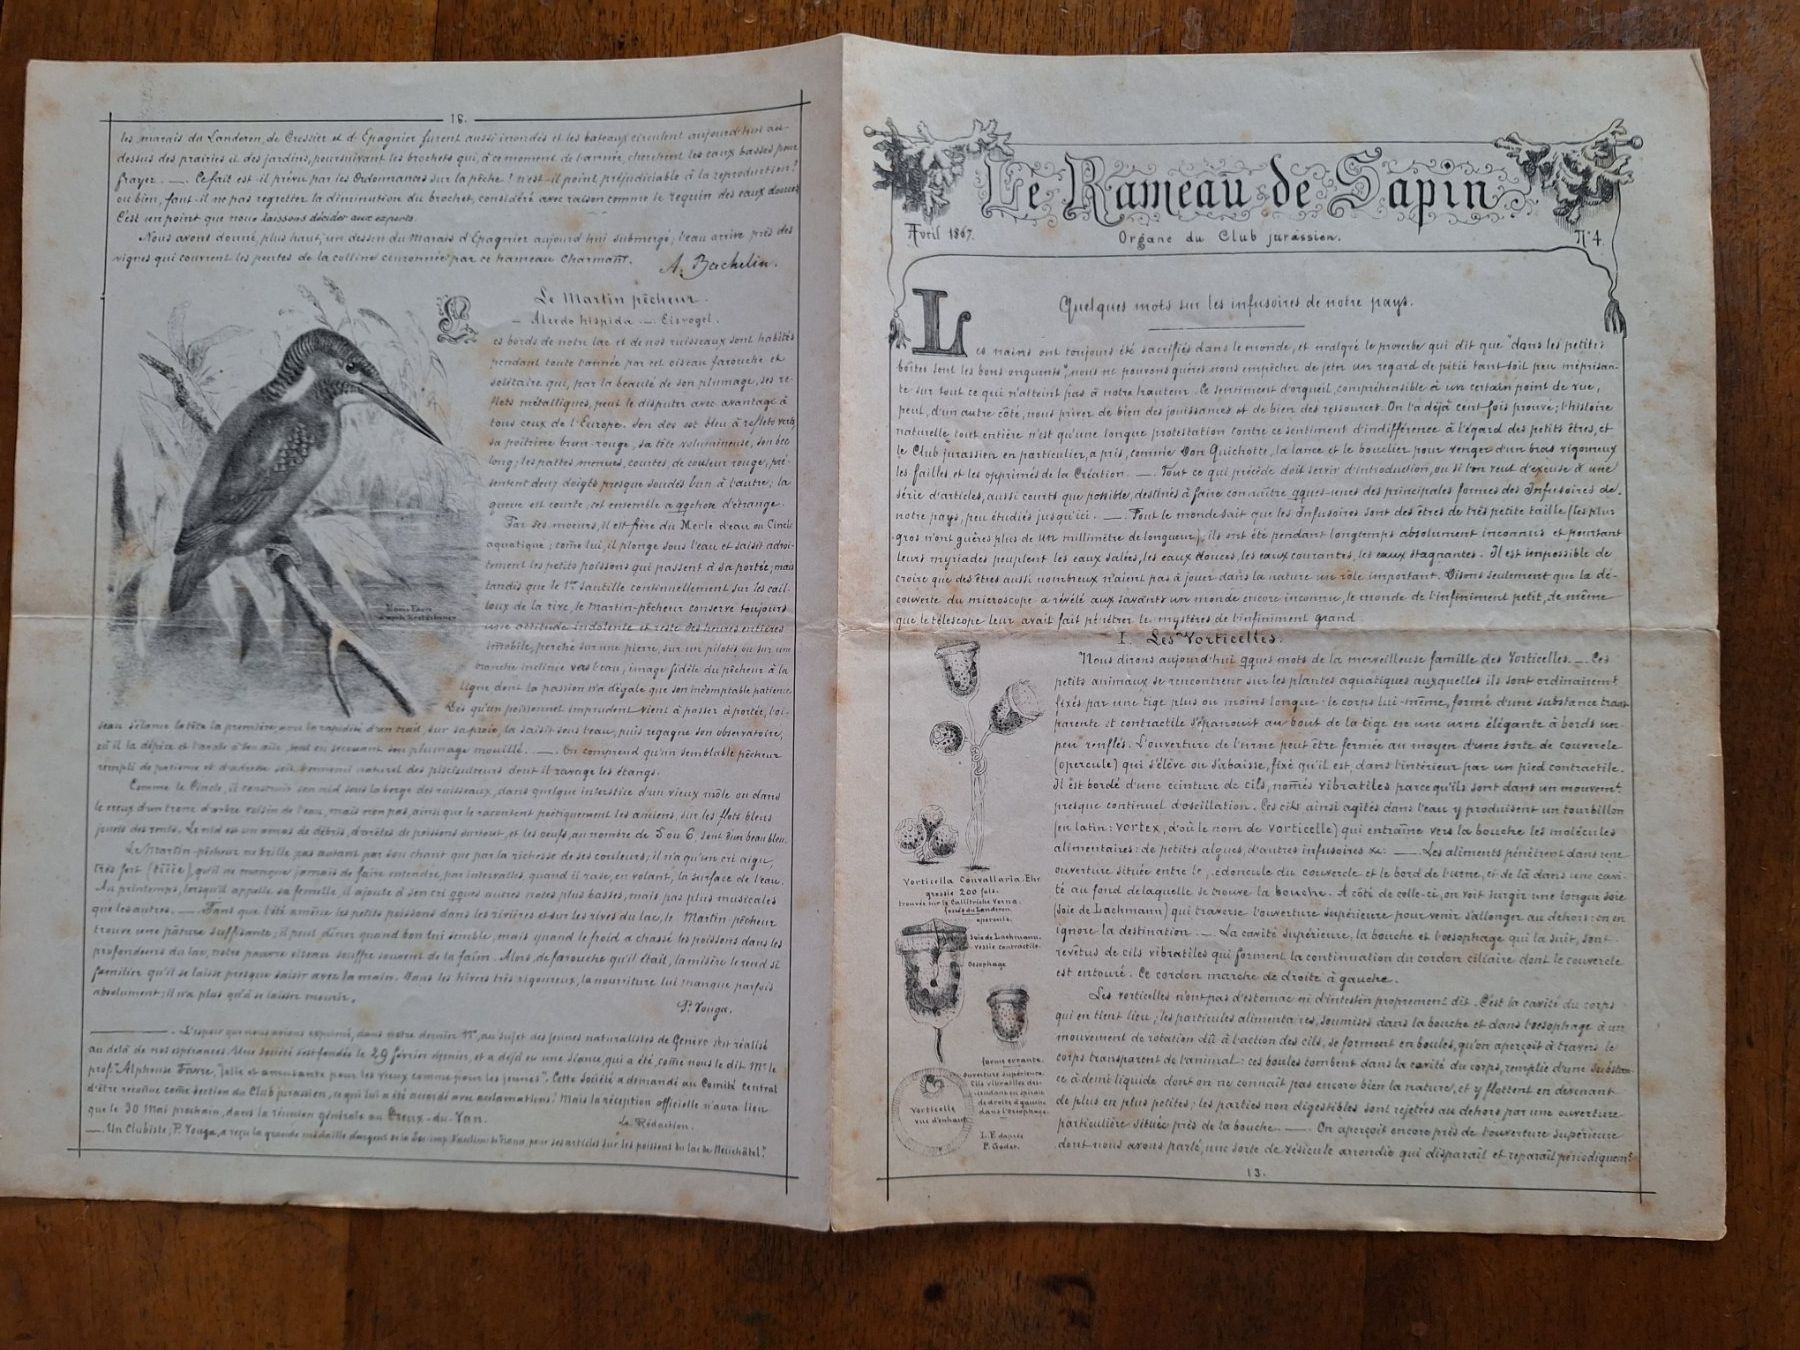 16.
les marais du Landeron, de Cressier et d'Epagnier furent aussi inondés et les bateaux circulent aujourd'hui au-
dessus des prairies et des jardins, poursuivant les brochets qui, à ce moment de l'année, cherchent les eaux basses pour
frayer. —. Ce fait est-il prévu par les Ordonnances sur la pêche! n'est-il point préjudiciable à la reproduction?
ou bien, faut-il ne pas regretter la diminution du brochet, considéré avec raison comme le requin des eaux douces
C'est un point que nous laissons décider aux experts.
Nous avons donné, plus haut, un dessin du Marais d'Epagnier aujourd'hui submergé; l'eau arrive près des
vignes qui couvrent les pentes de la colline couronnée par ce hameau charmant.
A. Bachelin.
Le Martin pêcheur.
— Alcedo hispida —. Eisvogel.
Les bords de notre lac et de nos ruisseaux sont habités
pendant toute l'année par cet oiseau farouche et
solitaire qui, par la beauté de son plumage, ses re-
flets métalliques, peut le disputer avec avantage à
tous ceux de l'Europe. Son dos est bleu à reflets verts,
sa poitrine brun-rouge, sa tête volumineuse, son bec
long; les pattes menues, courtes, de couleur rouge, pré-
sentent deux doigts presque soudés l'un à l'autre; la
queue est courte; cet ensemble a qqchose d'étrange.
Par ses moeurs, il est frère du Merle d'eau ou Cincle
aquatique; come lui, il plonge sous l'eau et saisit adroi-
tement les petits poissons qui passent à sa portée; mais
tandis que le 1er sautille continuellement sur les cail-
loux de la rive, le Martin-pêcheur conserve toujours
une attitude indolente et reste des heures entières
imobile, perché sur une pierre, sur un pilotis ou sur une
branche inclinée vers l'eau, image fidèle du pêcheur à la
ligne dont la passion n'a d'égale que son indomptable patience.
Dès qu'un poissonnet imprudent vient à passer à portée, l'oi-
seau s'élance la tête la première, avec la rapidité d'un trait, sur sa proie, la saisit sous l'eau, puis regagne son observatoire,
où il la dépèce et l'avale à son aise, tout en secouant son plumage mouillé. —. On comprend qu'un semblable pêcheur
rempli de patience et d'adresse soit l'ennemi naturel des pisciculteurs dont il ravage les étangs.
Comme le Cincle, il construit son nid sous la berge des ruisseaux, dans quelque interstice d'un vieux môle ou dans
le creux d'un tronc d'arbre voisin de l'eau, mais non pas, ainsi que le racontent poétiquement les anciens, sur les flots bleus
jouets des vents. Le nid est un amas de débris, d'arêtes de poissons surtout, et les oeufs, au nombre de 5 ou 6, sont d'un beau bleu.
Le Martin-pêcheur ne brille pas autant par son chant que par la richesse de ses couleurs; il n'a qu'un cri aigu,
très fort (tiiie), qu'il ne manque jamais de faire entendre, par intervalles, quand il rase, en volant, la surface de l'eau.
Au printemps, lorsqu'il appelle sa femelle, il ajoute à son cri qques autres notes plus basses, mais pas plus musicales
que les autres. —. Tans que l'été amène les petits poissons dans les rivières et sur les rives du lac, le Martin-pêcheur
trouve une pâture suffisante; il peut dîner quand bon lui semble, mais quand le froid a chassé les poissons dans les
profondeurs du lac, notre pauvre oiseau souffre souvent de la faim. Alors, de farouche qu'il était, la misère le rend si
familier qu'il se laisse presque saisir avec la main. Dans les hivers très rigoureux, la nourriture lui manque parfois
absolument; il n'a plus qu'à se laisser mourir.
P. Vouga.
L'espoir que nous avions exprimé, dans notre dernier No, au sujet des jeunes naturalistes de Genève est réalisé
au delà de nos espérances. Une société s'est fondée le 29 février dernier, et a déjà eu une séance, qui a été, come nous le dit Mr le
prof. Alphonse Favre, "jolie et amusante pour les vieux comme pour les jeunes". Cette Société a demandé au Comité central
d'être reconnue come section du Club jurassien, ce qui lui a été accordé avec acclamations! Mais la réception officielle n'aura lieu
que le 30 Mai prochain, dans la réunion générale au Creux-du-Van.
La Rédaction.
—. Un Clubiste, P. Vouga, a reçu la grande médaille d'argent de la Soc. imp. pour ses articles sur les poissons du lac de Neuchâtel.
Le Rameau de Sapin
Avril 1867.
Organe du Club jurassien.
No 4.
Quelques mots sur les infusoires de notre pays.
Les nains ont toujours été sacrifiés dans le monde, et malgré le proverbe qui dit que "dans les petites
boîtes sont les bons onguents", nous ne pouvons guères nous empêcher de jeter un regard de pitié tant soit peu méprisan-
te sur tout ce qui n'atteint pas à notre hauteur. Ce sentiment d'orgueil, compréhensible à un certain point de vue,
peut, d'un autre côté, nous priver de bien des jouissances et de bien des ressources. On l'a déjà cent fois prouvé; l'histoire
naturelle tout entière n'est qu'une longue protestation contre ce sentiment d'indifférence à l'égard des petits êtres, et
le Club jurassien en particulier, a pris, comme Don Quichotte, la lance et le bouclier pour venger d'un bras vigoureux
les faibles et les opprimés de la Création. —. Tout ce qui précède doit servir d'introduction, ou si l'on veut d'excuse à une
série d'articles, aussi courts que possible, destinés à faire connaître qques-unes des principales formes des Infusoires de
notre pays, peu étudiés jusqu'ici. —. Tout le monde sait que les Infusoires sont des êtres de très petite taille (les plus
gros n'ont guères plus de un millimètre de longueur), ils ont été pendant longtemps absolument inconnus et pourtant
leurs myriades peuplent les eaux salées, les eaux douces, les eaux courantes, les eaux stagnantes. Il est impossible de
croire que des êtres aussi nombreux n'aient pas à jouer dans la nature un rôle important. Disons seulement que la dé-
couverte du microscope a révélé aux savants un monde encore inconnu, le monde de l'infiniment petit, de même
que le télescope leur avait fait pénétrer le mystères de l'infiniment grand.
I. Les Vorticelles.
Nous dirons aujourd'hui qques mots de la merveilleuse famille des Vorticelles. —. Ces
petits animaux se rencontrent sur les plantes aquatiques auxquelles ils sont ordinairemt
fixés par une tige plus ou moins longue: le corps lui-même, formé d'une substance trans-
parente et contractile s'épanouit au bout de la tige en une urne élégante à bords un
peu renflés. L'ouverture de l'urne peut être fermée au moyen d'une sorte de couvercle
(opercule) qui s'élève ou s'abaisse, fixé qu'il est, dans l'intérieur par un pied contractile.
Il est bordé d'une ceinture de cils, només vibratiles parce qu'ils sont dans un mouvemt
presque continuel d'oscillation. Ces cils ainsi agités dans l'eau y produisent un tourbillon
(en latin: vortex, d'où le nom de vorticelle) qui entraîne vers la bouche les molécules
alimentaires: de petites algues, d'autres infusoires &c: —. Les aliments pénètrent dans une
ouverture située entre le pédoncule du couvercle et le bord de l'urne, et de là dans une cavi-
té au fond de laquelle se trouve la bouche. A côté de celle-ci, on voit surgir une longue soie
(soie de Lachmann) qui traverse l'ouverture supérieure pour venir s'allonger au dehors: on en
ignore la destination. —. La cavité supérieure, la bouche et l'oesophage qui la suit, sont
revêtus de cils vibratiles qui forment la continuation du cordon ciliaire dont le couvercle
est entouré. Ce cordon marche de droite à gauche.
Les vorticelles n'ont pas d'estomac ni d'intestin proprement dit. C'est la cavité du corps
qui en tient lieu; les particules alimentaires, soumises dans la bouche et dans l'oesophage à un
mouvement de rotation dû à l'action des cils, se forment en boules, qu'on aperçoit à travers le
corps transparent de l'animal: ces boules tombent dans la cavité du corps, remplie d'une substan-
ce à demi-liquide dont on ne connaît pas encore bien la nature, et y flottent en devenant
de plus en plus petites; les parties non digestibles sont rejetées au dehors par une ouverture
particulière située près de la bouche. —. On aperçoit encore près de l'ouverture supérieure
dont nous avons parlé, une sorte de vésicule arrondie qui disparaît et reparaît périodiquemt
Vorticella Convallaria. Ehr
grossie 200 fois.
trouvée sur le Callitriche verna.
fossés du Landeron.
opercule.
Soie de Lachmann.
vessie contractile.
Oesophage
forme errante.
ouverture supérieure.
Cils vibratiles des-
cendant en spirale
de droite à gauche
dans l'oesophage.
Vorticelle
vue d'en haut
L. F. d'après
P. Godet.
13.